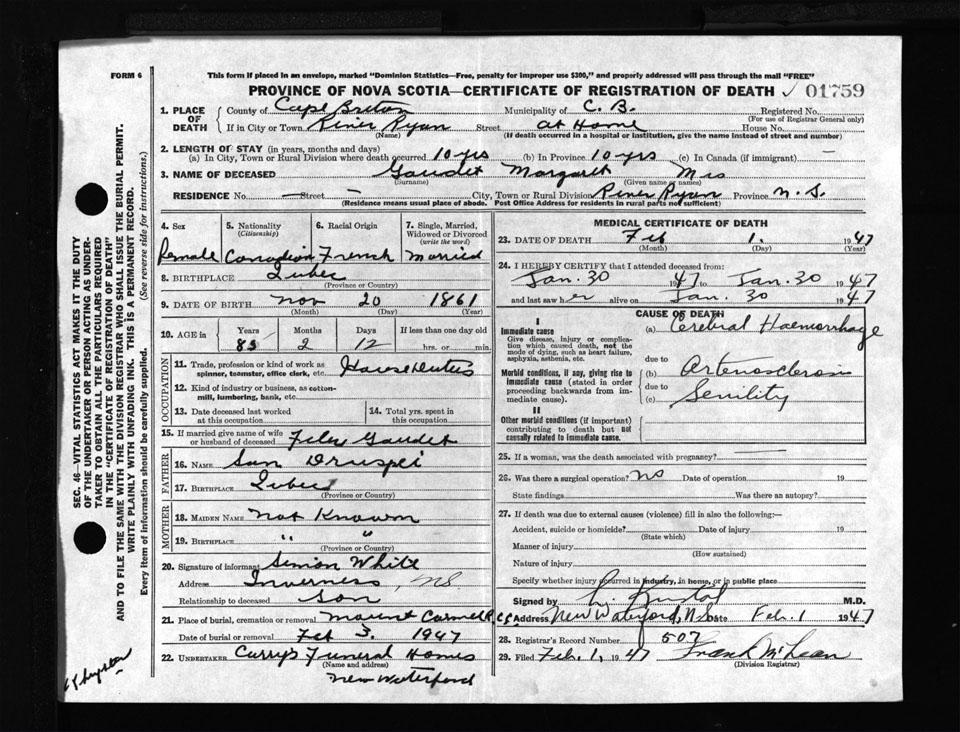 FORM 6
This form if placed in an envelope, marked "Dominion Statistics—Free, penalty for improper use $300," and properly addressed will pass through the mail "FREE"
PROVINCE OF NOVA SCOTIA—CERTIFICATE OF REGISTRATION OF DEATH ✓ 01759
1. PLACE OF DEATH
County of Cape Breton Municipality of C. B. Registered No.
(For use of Registrar General only)
If in City or Town River Ryan Street at Home House No.
(Name) (If death occurred in a hospital or institution, give the name instead of street and number)
2. LENGTH OF STAY (in years, months and days)
(a) In City, Town or Rural Division where death occurred 10 yrs (b) In Province 10 yrs (c) In Canada (if immigrant) —
3. NAME OF DECEASED Gaudet Margaret Mrs
(Surname) (Given name or names)
RESIDENCE No. — Street — City, Town or Rural Division River Ryan Province N. S.
(Residence means usual place of abode. Post Office Address for residents in rural parts not sufficient)
4. Sex
Female
5. Nationality
(Citizenship)
Canadian
6. Racial Origin
French
7. Single, Married, Widowed or Divorced
(write the word)
Married
8. BIRTHPLACE
(Province or Country)
9. DATE OF BIRTH Nov 20 1861
(Month) (Day) (Year)
10. AGE in Years Months Days If less than one day old
85 2 12 hrs. or min.
OCCUPATION
11. Trade, profession or kind of work as spinner, teamster, office clerk, etc. House Duties
12. Kind of industry or business, as cotton-mill, lumbering, bank, etc.
13. Date deceased last worked at this occupation
14. Total yrs. spent in this occupation
15. If married give name of wife or husband of deceased Gaudet
FATHER
16. NAME
17. BIRTHPLACE
(Province or Country)
MOTHER
18. MAIDEN NAME Not Known
19. BIRTHPLACE " "
(Province or Country)
20. Signature of informant Simon White
Address Inverness NS
Relationship to deceased Son
21. Place of burial, cremation or removal Mount Carmel
Date of burial or removal Feb 3, 1947
22. UNDERTAKER Currys Funeral Homes
(Name and address)
New Waterford
MEDICAL CERTIFICATE OF DEATH
23. DATE OF DEATH Feb 1. 1947
(Month) (Day) (Year)
24. I HEREBY CERTIFY that I attended deceased from:
Jan. 30 1947 to Jan. 30 1947
and last saw her alive on Jan. 30 1947
CAUSE OF DEATH
I
Immediate cause
Give disease, injury or complication which caused death, not the mode of dying, such as heart failure, asphyxia, asthenia, etc.
(a) Cerebral Haemorrhage
due to
Morbid conditions, if any, giving rise to immediate cause (stated in order proceeding backwards from immediate cause).
(b) Arteriosclerosis
due to
(c) Senility
II
Other morbid conditions (if important) contributing to death but not causally related to immediate cause.
25. If a woman, was the death associated with pregnancy? —
26. Was there a surgical operation? no Date of operation 19
State findings Was there an autopsy?
27. If death was due to external causes (violence) fill in also the following:—
Accident, suicide or homicide? Date of injury 19
(State which)
Manner of injury
(How sustained)
Nature of injury
Specify whether injury occurred in industry, in home, or in public place
Signed by M.D.
Address New Waterford, N.S. Date Feb. 1 1947
28. Registrar's Record Number 507
29. Filed Feb. 1, 1947 Frank McLean
(Division Registrar)
SEC. 46—VITAL STATISTICS ACT MAKES IT THE DUTY
OF THE UNDERTAKER OR PERSON ACTING AS UNDER-
TAKER TO OBTAIN ALL THE PARTICULARS REQUIRED
IN THE "CERTIFICATE OF REGISTRATION OF DEATH"
AND TO FILE THE SAME WITH THE DIVISION REGISTRAR WHO SHALL ISSUE THE BURIAL PERMIT.
WRITE PLAINLY WITH UNFADING INK. THIS IS A PERMANENT RECORD.
Every item of information should be carefully supplied. (See reverse side for instructions.)